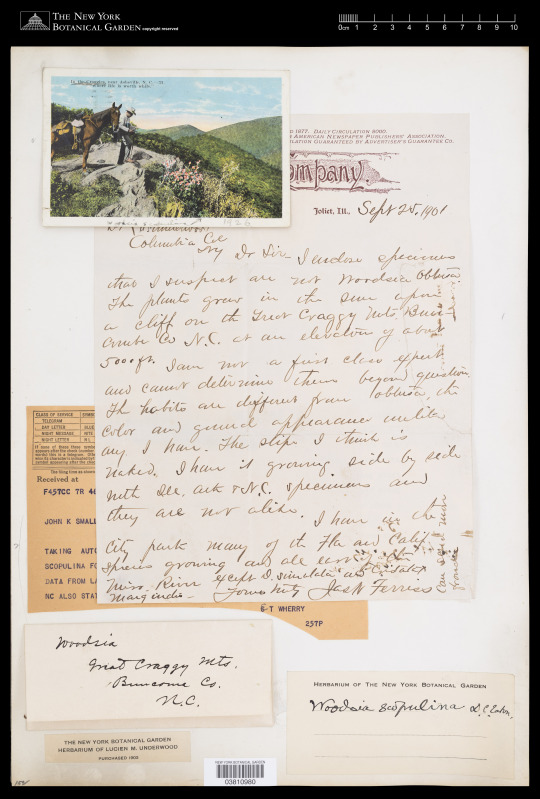 THE NEW YORK
BOTANICAL GARDEN
copyright reserved
0cm 1 2 3 4 5 6 7 8 9 10
In the Craggies near Asheville, N. C.
where life is worth while.
1926
1877. DAILY CIRCULATION 6000.
AMERICAN NEWSPAPER PUBLISHERS' ASSOCIATION.
CIRCULATION GUARANTEED BY ADVERTISER'S GUARANTEE CO.
Company.
Joliet, Ill., Sept 25, 1901
Underwood
Columbia Col
NY Dr Sir I enclose specimens
that I suspect are not Woodsia obtusa
The plants grew in the sun upon
a cliff on the Great Craggy Mts. Bun-
combe Co N.C. at an elevation of about
5000 ft. I am not a first class expert
and cannot determine them beyond question.
The habits are different from obtusa, the
color and general appearance unlike
any I have. The stipe I think is
naked, I have it growing side by side
with Ill. Ark & N.C. specimens and
they are not alike. I have in the
City park many of the Fla and Calif
species growing and all east of the
Miss. River except D. simulata and
marginalis. Yours truly Jas H Ferriss
Can send more
fronds
CLASS OF SERVICE SYMBOL
TELEGRAM
DAY LETTER BLUE
NIGHT MESSAGE NITE
NIGHT LETTER N L
Received at
F457CC TR 46
JOHN K SMALL
TAKING AUTO
SCOPULINA FO
DATA FROM LA
NC ALSO STAT
E T WHERRY
257P
Woodsia
Great Craggy Mts.
Buncome Co.
N.C.
THE NEW YORK BOTANICAL GARDEN
HERBARIUM OF LUCIEN M. UNDERWOOD
PURCHASED 1902
NEW YORK BOTANICAL GARDEN
03810980
HERBARIUM OF THE NEW YORK BOTANICAL GARDEN
Woodsia scopulina D.C. Eaton,